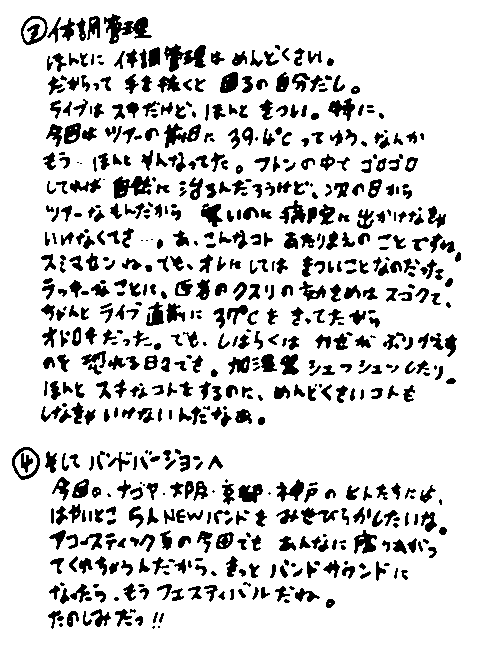 ③体調管理
ほんとに 体調管理は めんどくさい。
だからって 手を抜くと 困るの自分だし。
ライブは スキだけど、ほんと きつい。特に、
今回は ツアーの前日に 39.4℃ってゆう、なんか
もう… ほんと そんなってた。フトンの中で ゴロゴロ
してれば 自然に 治るんだろうけど、次の日から
ツアーなもんだから 寒いのに 病院に 出かけなきゃ
いけなくてさ…。あ、こんなコト あたりまえの ことですね。
スミマセンね。でも、オレにしては きついことなのだった。
ラッキーなことに、医者のクスリの効きめは スゴクて、
ちゃんと ライブ直前に 37℃を きってたから
オドロキだった。でも、しばらくは カゼが ぶりかえす
のを 恐れる日々でも。加湿器 シュンシュンしたり。
ほんと スキなコトをするのに、めんどくさいコトも
しなきゃ いけないんだなぁ。
④そして バンドバージョンへ
今回の、ナゴヤ・大阪・京都・神戸の とんたちには、
はやいとこ NEWバンドを みせびらかしたいな。
アコースティックな今回でも あんなに 盛りあがって
てくれちゃうんだから、きっと バンドサウンドに
なったら、もう フェスティバルだね。
たのしみだっ!!